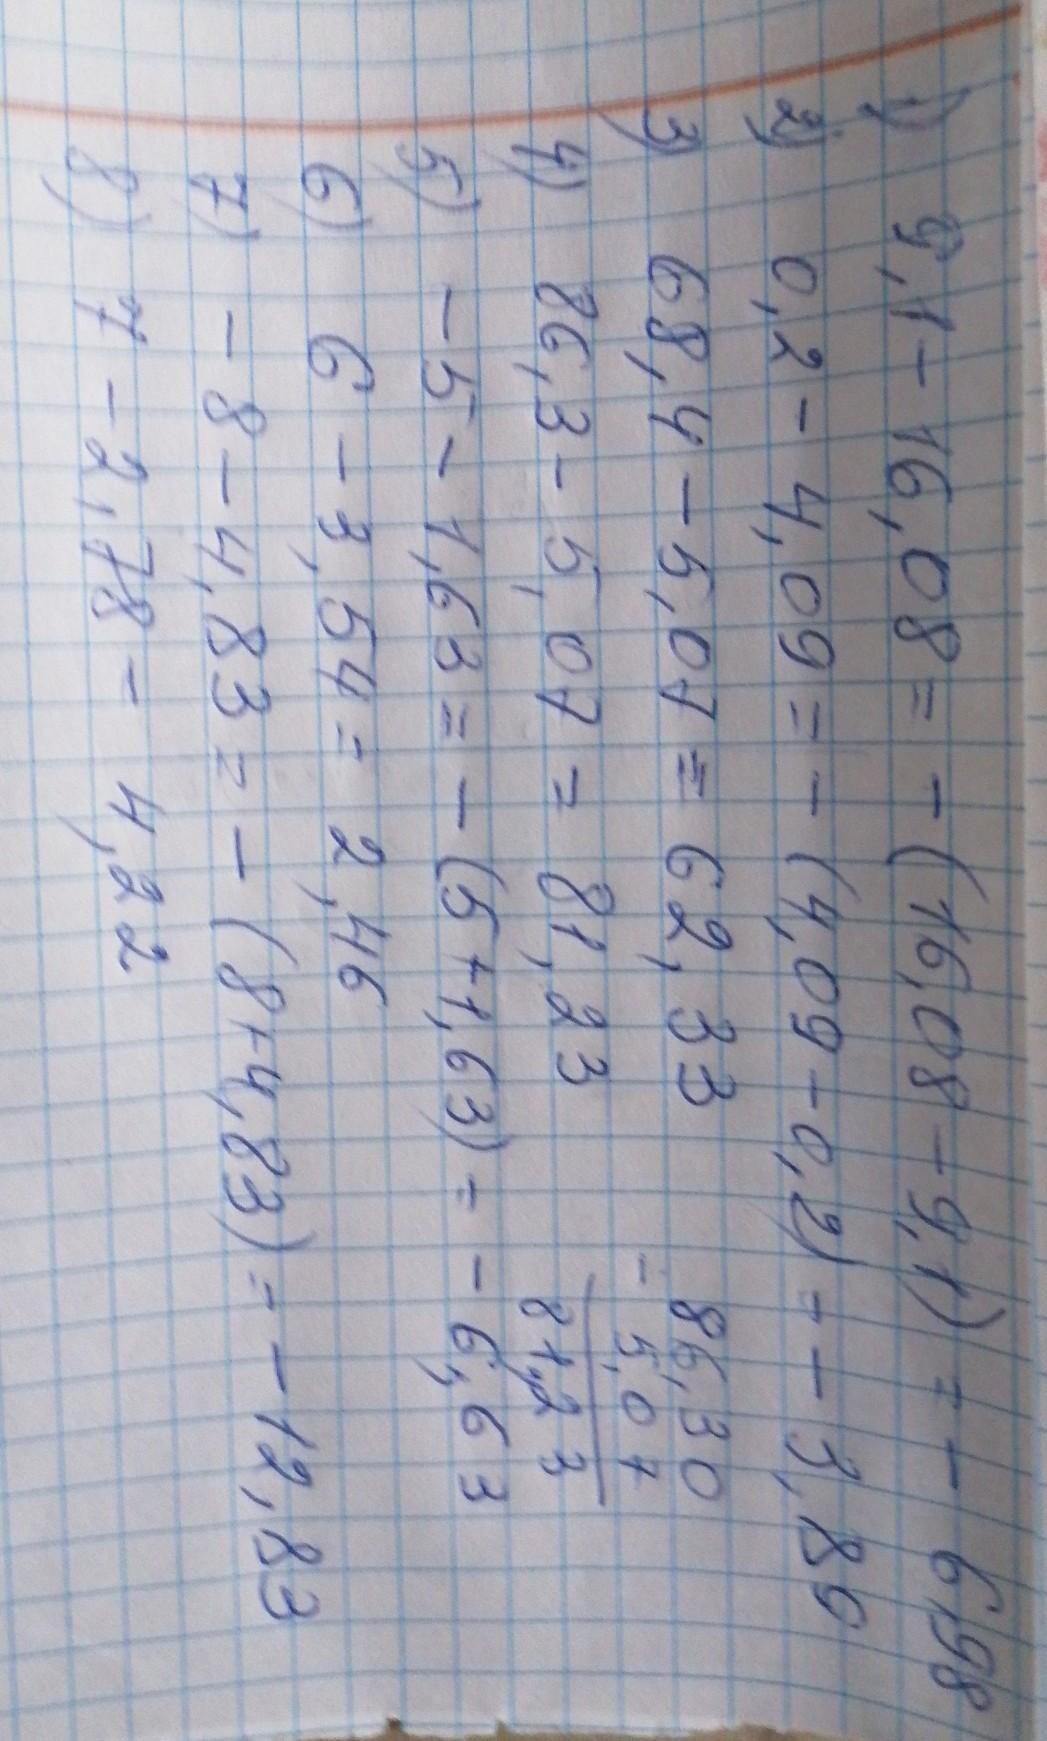 1) 9,1 - 16,08 = - (16,08 - 9,1) = - 6,98
2) 0,2 - 4,09 = - (4,09 - 0,2) = - 3,89
3) 68,4 - 5,07 = 62,33
4) 86,3 - 5,07 = 81,23
- 86,30
5,07
81,23
5) - 5 - 1,63 = - (5 + 1,63) = - 6,63
6) 6 - 3,54 = 2,46
7) - 8 - 4,83 = - (8 + 4,83) = - 12,83
8) 7 - 2,78 - 4,22